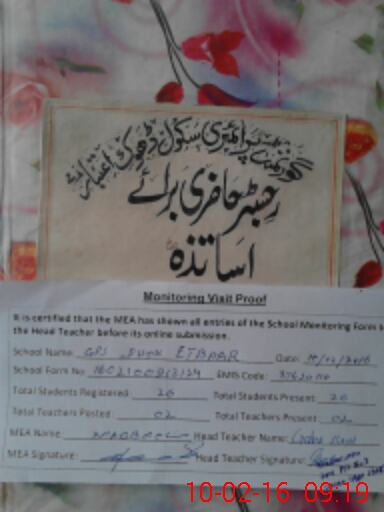 گورنمنٹ پرائمری سکول ڈھوک اعتبار
رجسٹر حاضری برائے
اساتذہ
Monitoring Visit Proof
It is certified that the MEA has shown all entries of the School Monitoring Form to
the Head Teacher before its online submission.
School Name: GPS DHOK ETBAAR Date: 10/02/2016
School Form No EMIS Code:
Total Students Registered: 20 Total Students Present: 20
Total Teachers Posted: 02 Total Teachers Present: 02
MEA Name: Head Teacher Name:
MEA Signature: Head Teacher Signature:
10-02-16 09:19